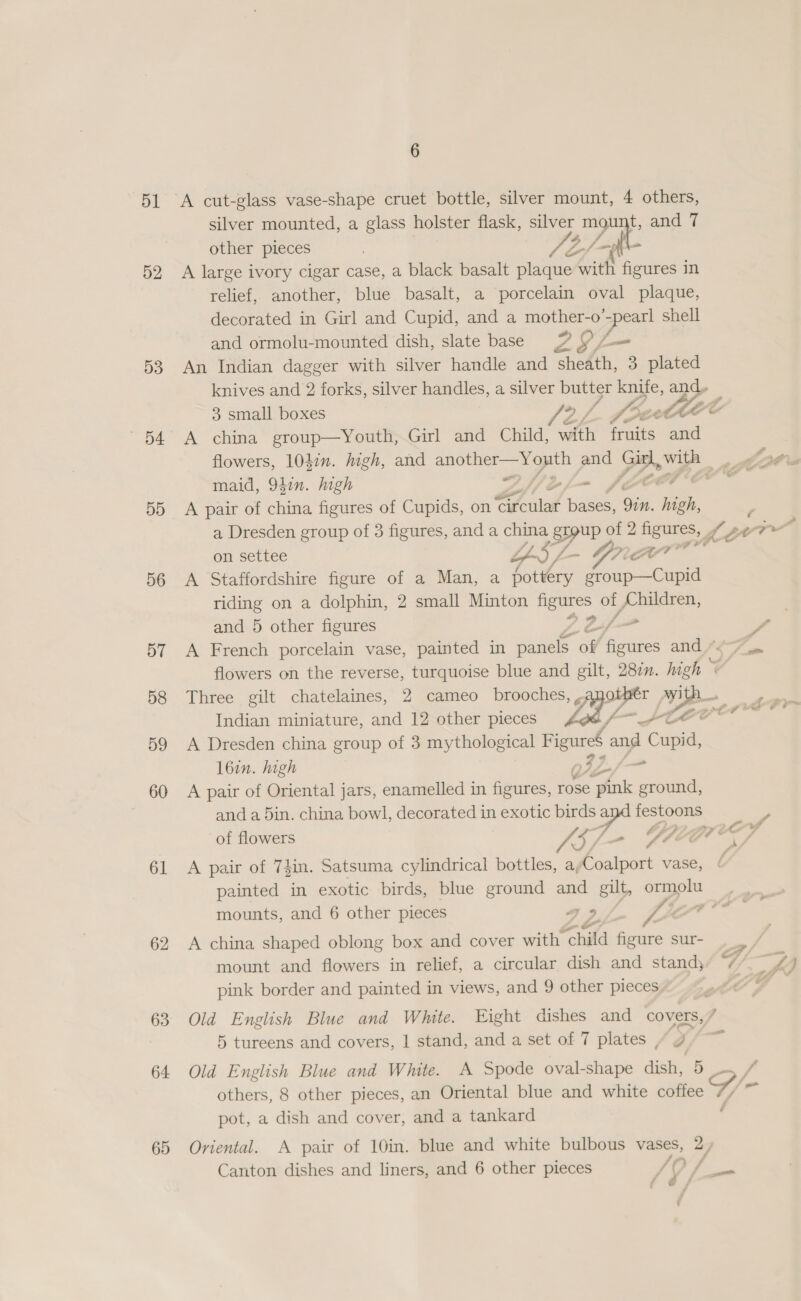 6
51 A cut-glass vase-shape cruet bottle, silver mount, 4 others,
silver mounted, a glass holster flask, silver mount, and 7
other pieces 12/-
52 A large ivory cigar case, a black basalt plaque with figures in
relief, another, blue basalt, a porcelain oval plaque,
decorated in Girl and Cupid, and a mother-o'-pearl shell
and ormolu-mounted dish, slate base 28/-
53 An Indian dagger with silver handle and sheath, 3 plated
knives and 2 forks, silver handles, a silver butter knife, and
3 small boxes 12/-
54 A china group—Youth, Girl and Child, with fruits and
flowers, 10½in. high, and another—Youth and Girl, with
maid, 9½in. high
55 A pair of china figures of Cupids, on circular bases, 9in. high,
a Dresden group of 3 figures, and a china group of 2 figures,
on settee
56 A Staffordshire figure of a Man, a pottery group—Cupid
riding on a dolphin, 2 small Minton figures of Children,
and 5 other figures
57 A French porcelain vase, painted in panels of figures and
flowers on the reverse, turquoise blue and gilt, 28in. high
58 Three gilt chatelaines, 2 cameo brooches, another with
Indian miniature, and 12 other pieces
59 A Dresden china group of 3 mythological Figures and Cupid,
16in. high
60 A pair of Oriental jars, enamelled in figures, rose pink ground,
and a 5in. china bowl, decorated in exotic birds and festoons
of flowers 15/-
61 A pair of 7½in. Satsuma cylindrical bottles, a Coalport vase,
painted in exotic birds, blue ground and gilt, ormolu
mounts, and 6 other pieces
62 A china shaped oblong box and cover with child figure sur-
mount and flowers in relief, a circular dish and stand,
pink border and painted in views, and 9 other pieces
63 Old English Blue and White. Eight dishes and covers,
5 tureens and covers, 1 stand, and a set of 7 plates
64 Old English Blue and White. A Spode oval-shape dish, 5
others, 8 other pieces, an Oriental blue and white coffee
pot, a dish and cover, and a tankard
65 Oriental. A pair of 10in. blue and white bulbous vases, 2
Canton dishes and liners, and 6 other pieces 10/-